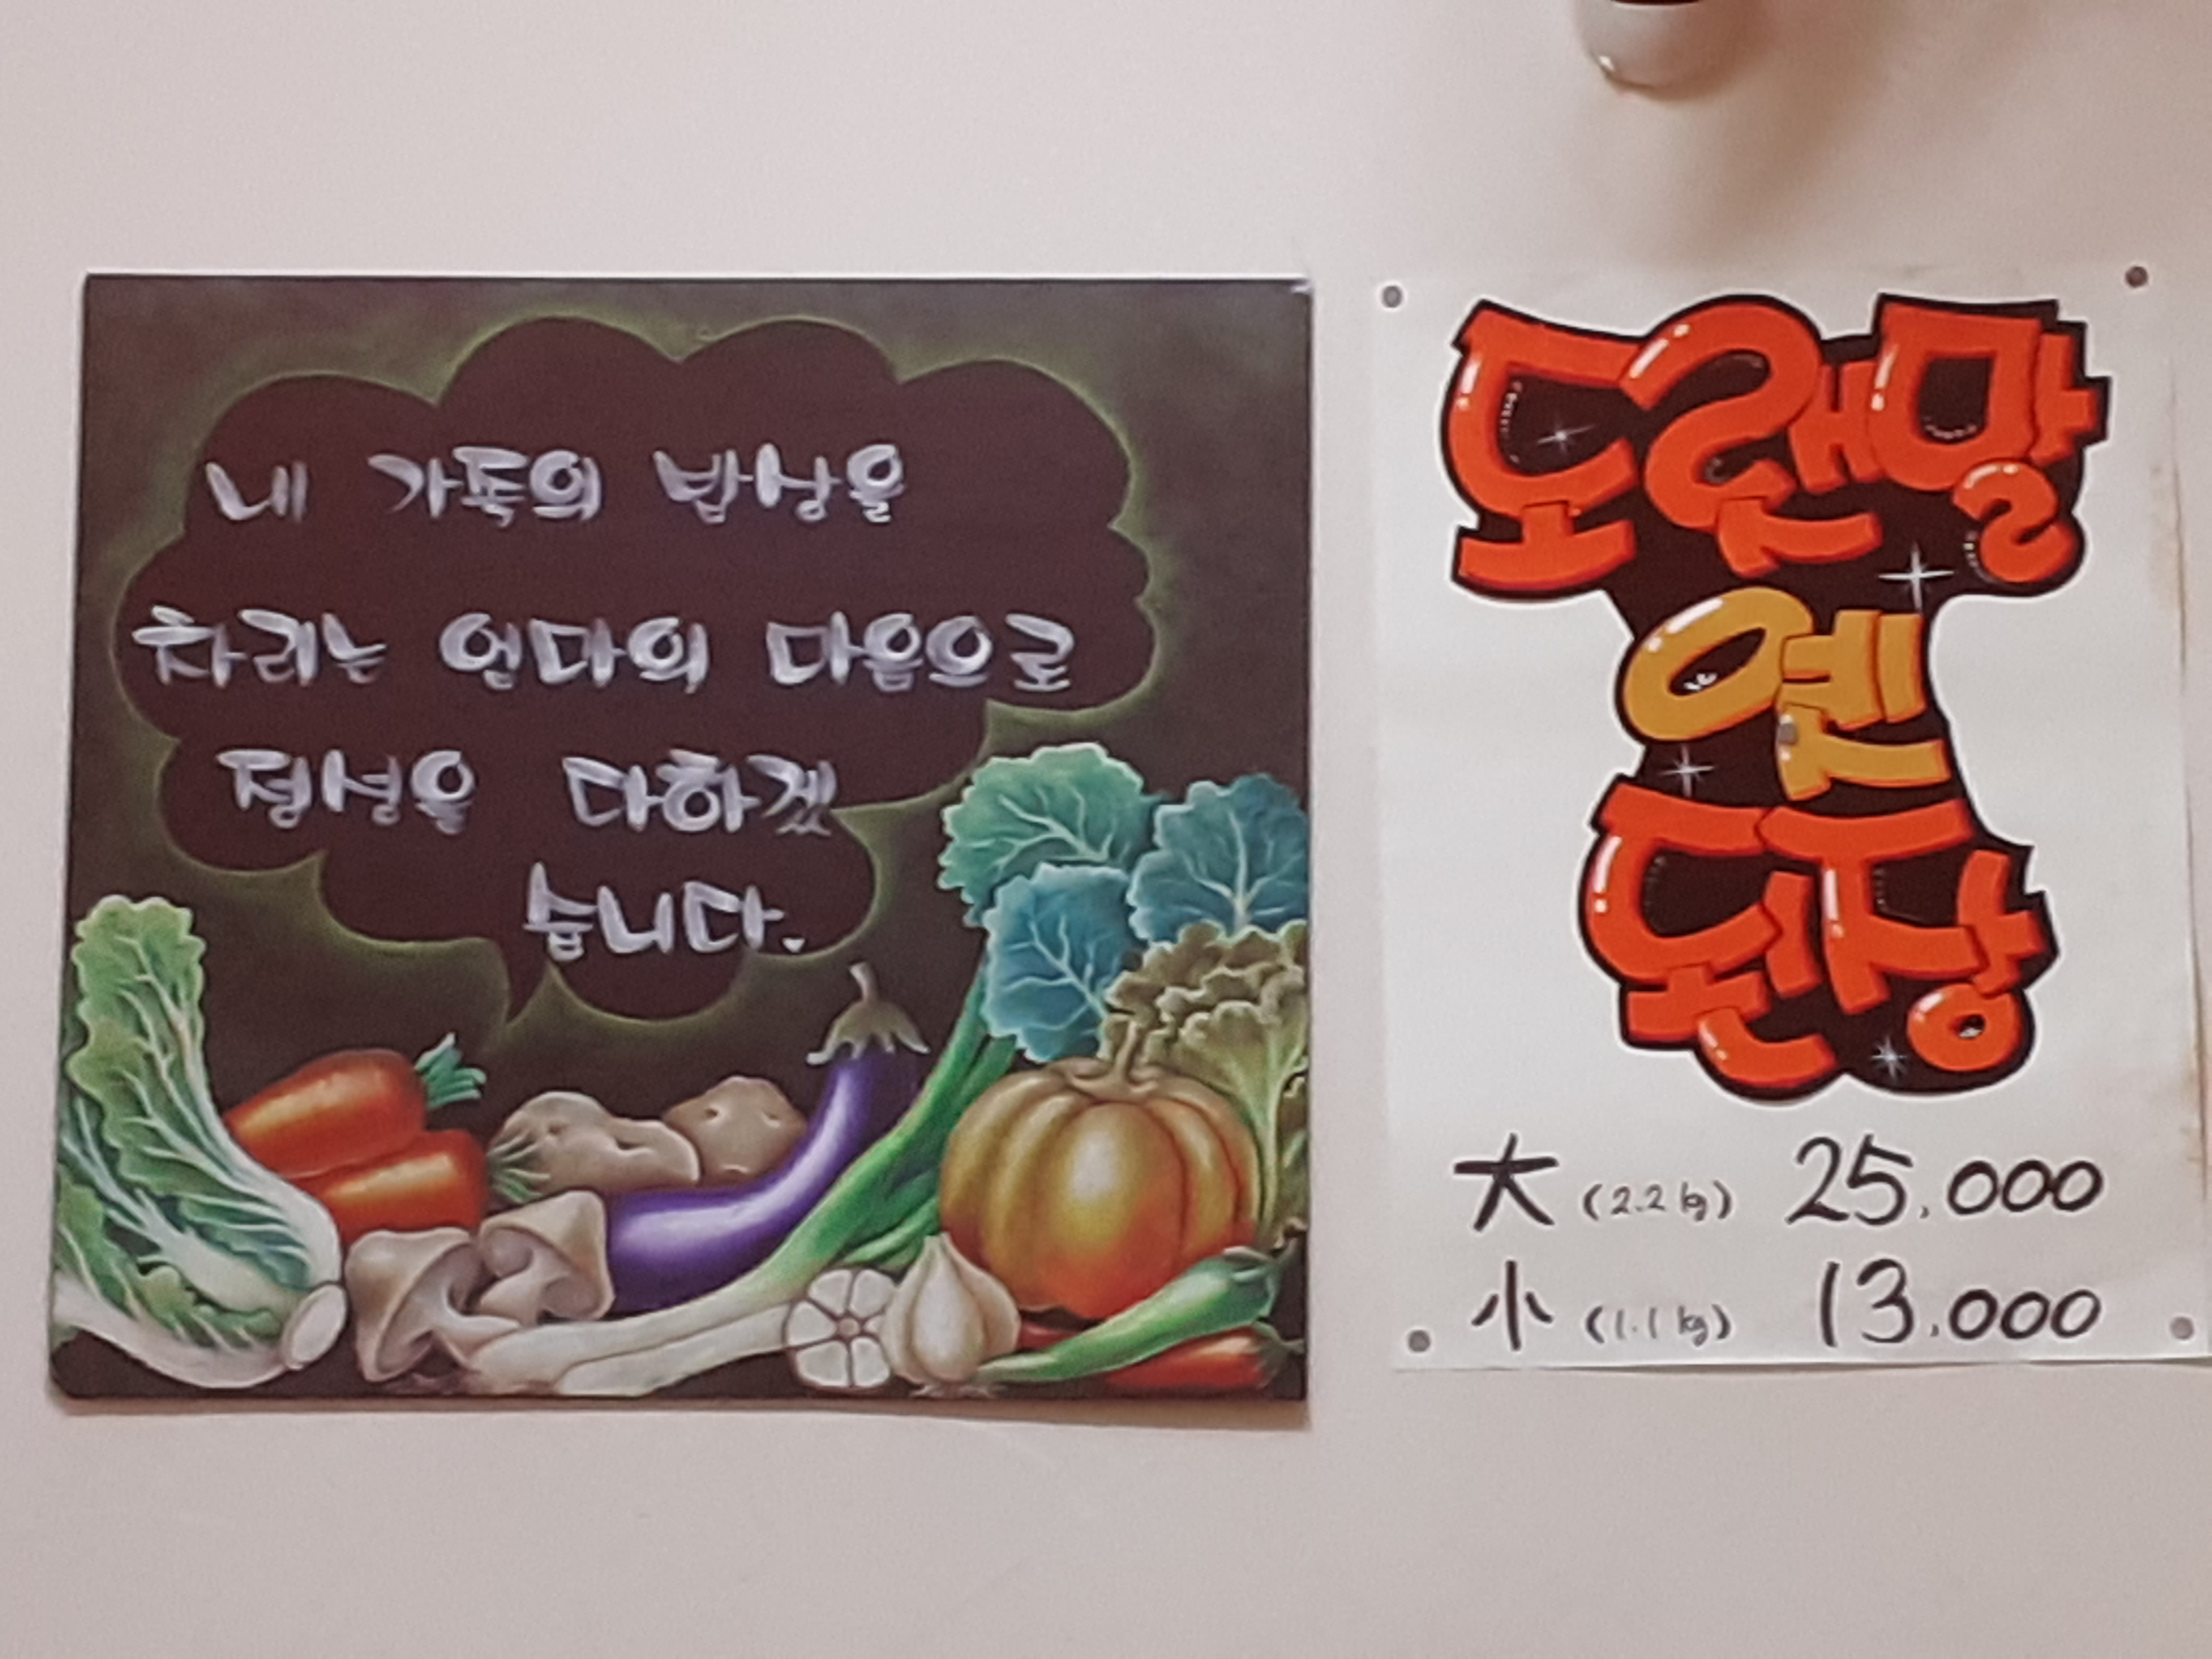 네 가족의 밥상을
차리는 엄마의 마음으로
정성을 다하겠
습니다.
도랜말
옌
된장
大 (2.2kg) 25,000
小 (1.1kg) 13,000